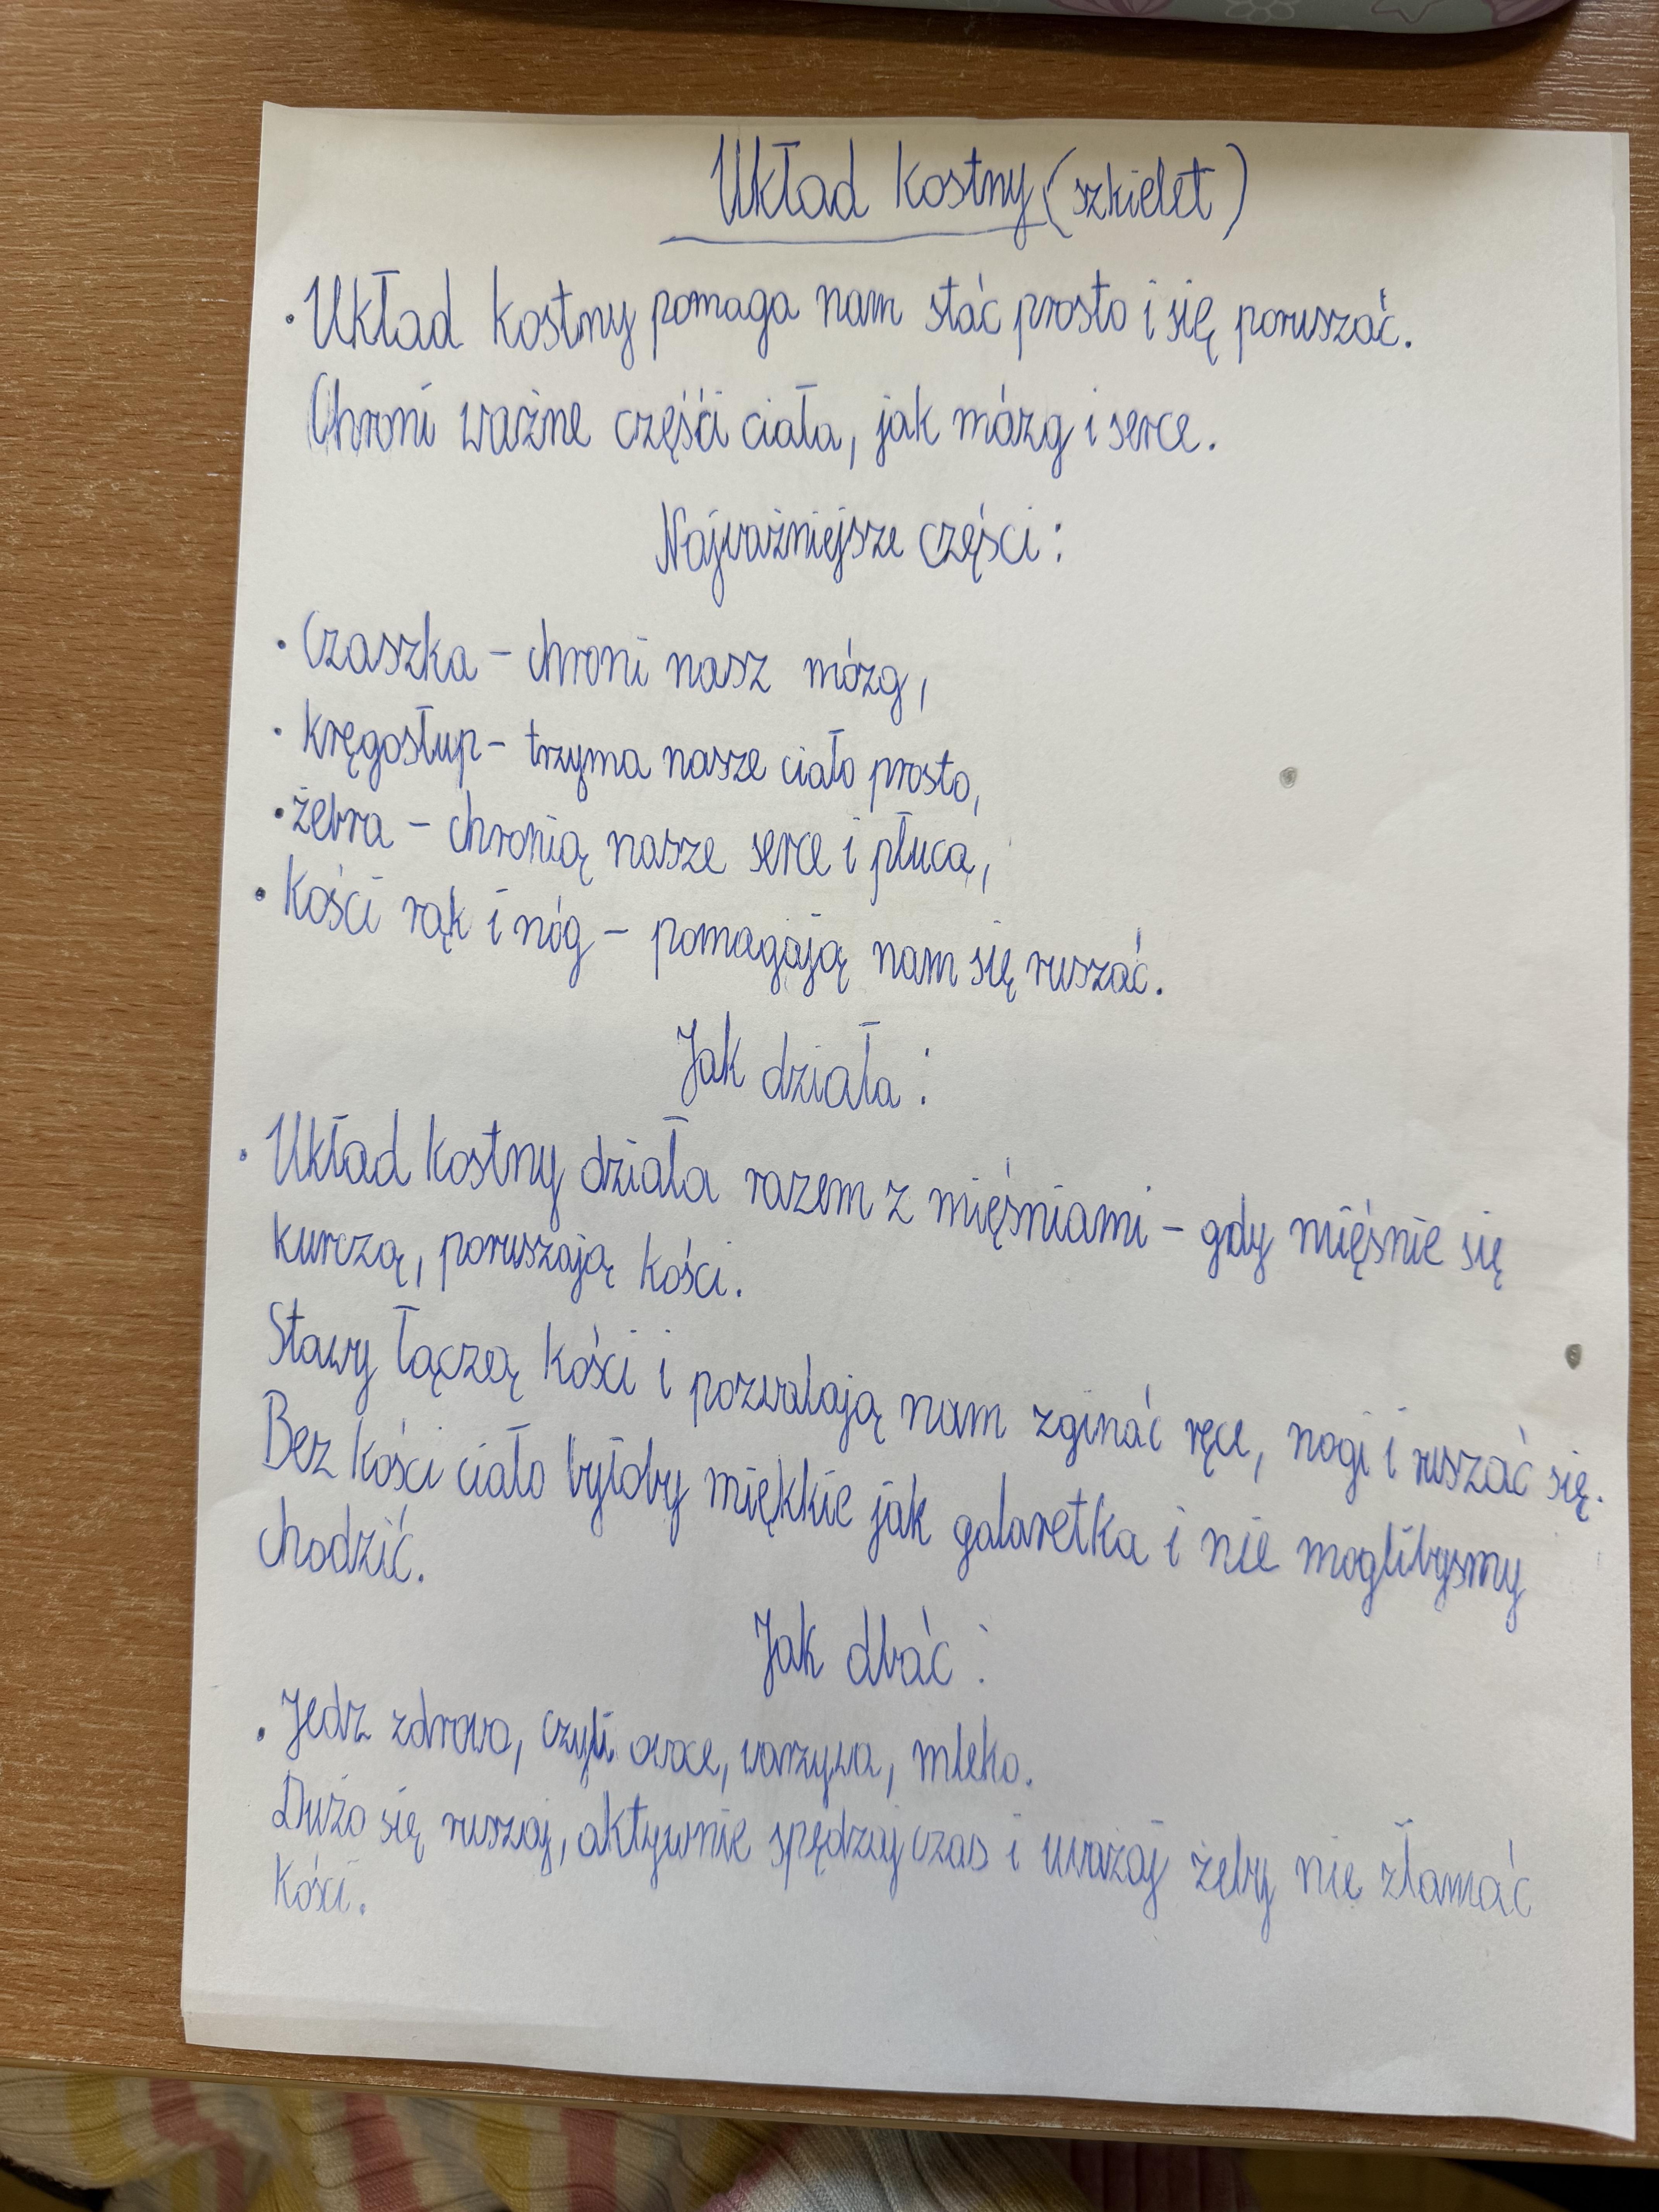 Układ kostny (szkielet)
• Układ kostny pomaga nam stać prosto i się poruszać.
Chroni ważne części ciała, jak mózg i serce.
Najważniejsze części:
• Czaszka – chroni nasz mózg,
• kręgosłup – trzyma nasze ciało prosto,
• żebra – chronią nasze serce i płuca,
• Kości rąk i nóg – pomagają nam się ruszać.
Jak działa:
• Układ kostny działa razem z mięśniami – gdy mięśnie się
kurczą, poruszają kości.
Stawy łączą kości i pozwalają nam zginać ręce, nogi i ruszać się.
Bez kości ciało byłoby miękkie jak galaretka i nie moglibysmy
chodzić.
Jak dbać:
• Jedz zdrowo, czyli owoce, warzywa, mleko.
Dużo się ruszaj, aktywnie spędzaj czas i uważaj żeby nie złamać
kości.